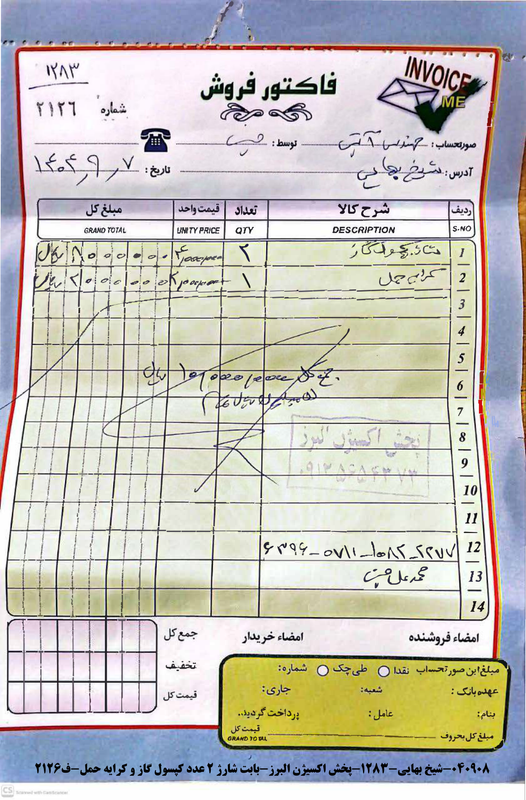 ۱۲۸۳
فاکتور فروش
INVOICE
ME
شماره ۲۱۲۶
صورتحساب: مهندس توسط:
آدرس: شیخ بهایی تاریخ: ۱۴۰۴/۹/۷
ردیف شرح کالا تعداد قیمت واحد مبلغ کل
S-NO DESCRIPTION QTY UNITY PRICE GRAND TOTAL
1 شارژ کپسول گاز ۲ ۴,۰۰۰,۰۰۰ ۸۰۰۰۰۰۰ ریال
2 کرایه حمل ۱ ۲,۰۰۰,۰۰۰ ۲۰۰۰۰۰۰ ریال
3
4
5
6 جمع کل ۱۰,۰۰۰,۰۰۰ ریال
7
8 پخش اکسیژن البرز
9
10
11
12 ۶۳۹۶-۰۷۱۱-۱۰۸۲-۲۲۷۷
13 محمد علی
14
امضاء فروشنده امضاء خریدار جمع کل
تخفیف
قیمت کل
مبلغ این صورتحساب نقدا طی چک شماره:
عهده بانک: شعبه: جاری:
بنام: عامل: پرداخت گردید..
مبلغ کل بحروف قیمت کل
GRAND TOTAL
۰۴۰۹۰۸-شیخ بهایی-۱۲۸۳-پخش اکسیژن البرز-بابت شارژ ۲ عدد کپسول گاز و کرایه حمل-ف۲۱۲۶
CS Scanned with CamScanner